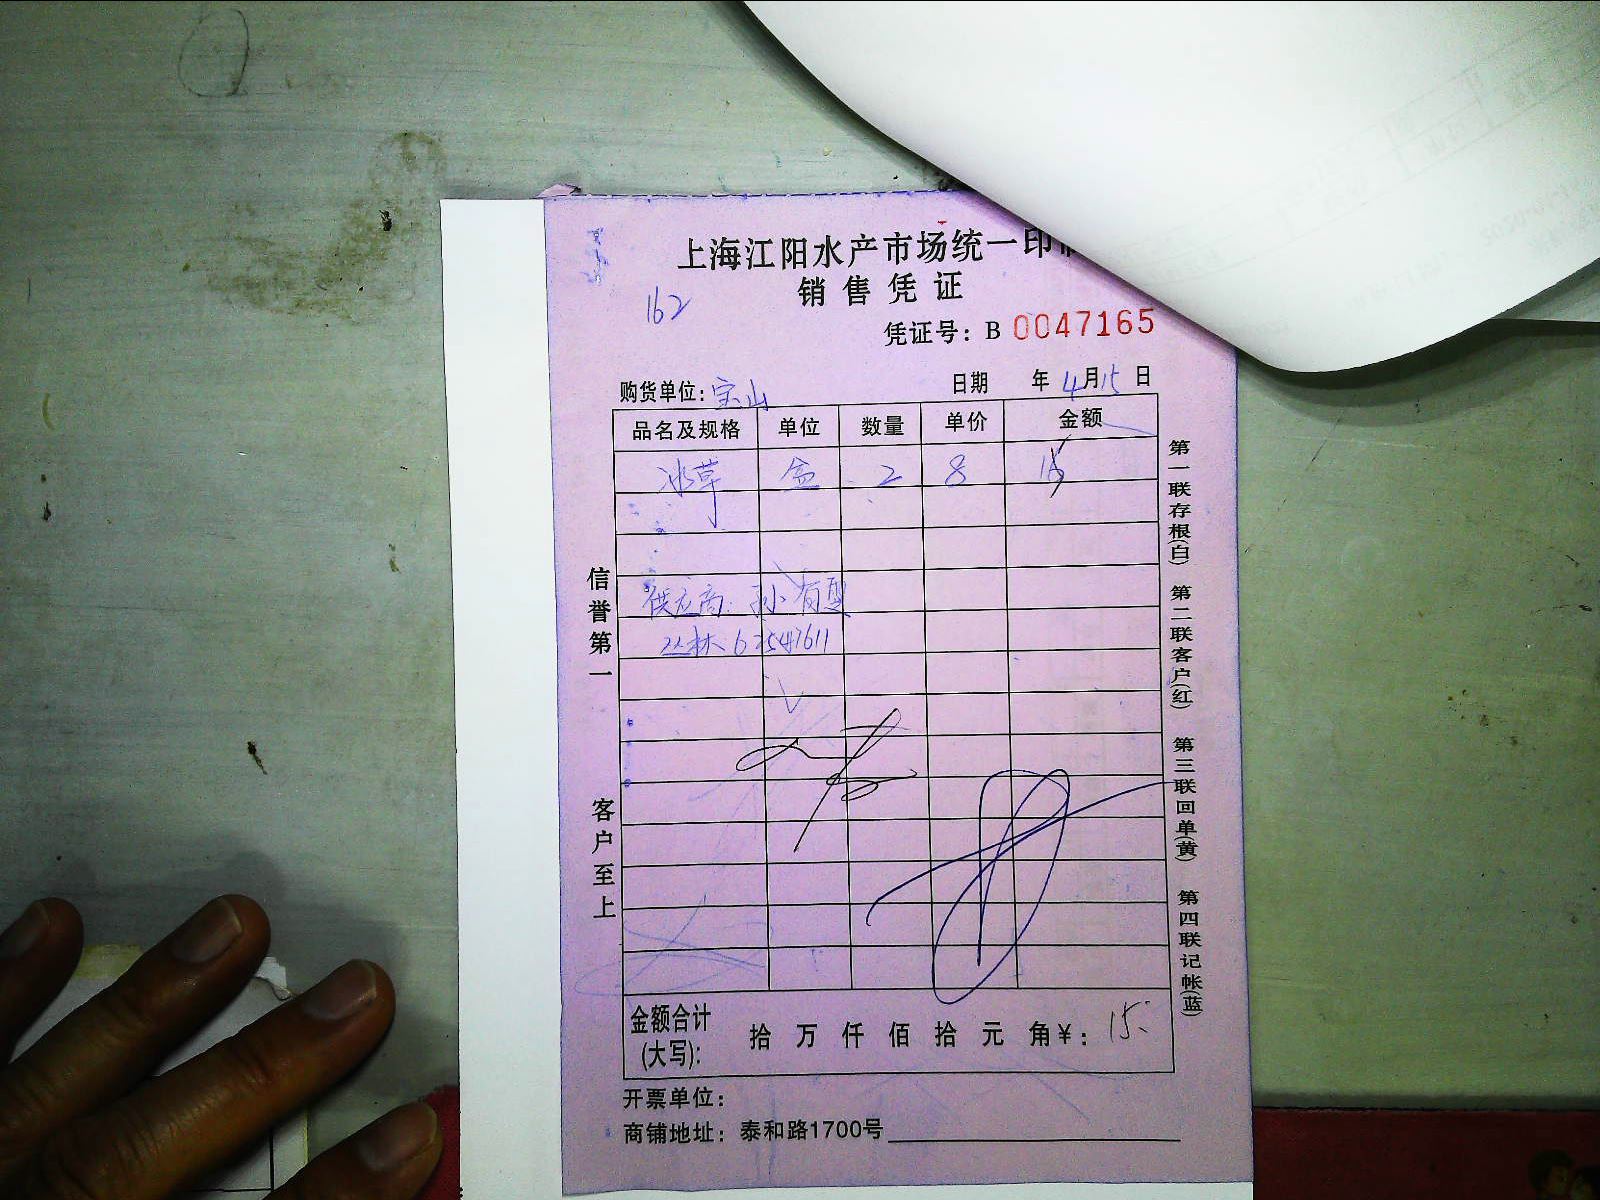 上海江阳水产市场统一印
销售凭证
162
凭证号：B 0047165
购货单位：宝山 日期 年 4月15日
品名及规格 单位 数量 单价 金额
冰草 盒 2 8 15
供应商：孙有
丛林 62547611
金额合计(大写)： 拾 万 仟 佰 拾 元 角￥：15
开票单位：
商铺地址：泰和路1700号
信誉第一
客户至上
第一联存根(白)
第二联客户(红)
第三联回单(黄)
第四联记帐(蓝)